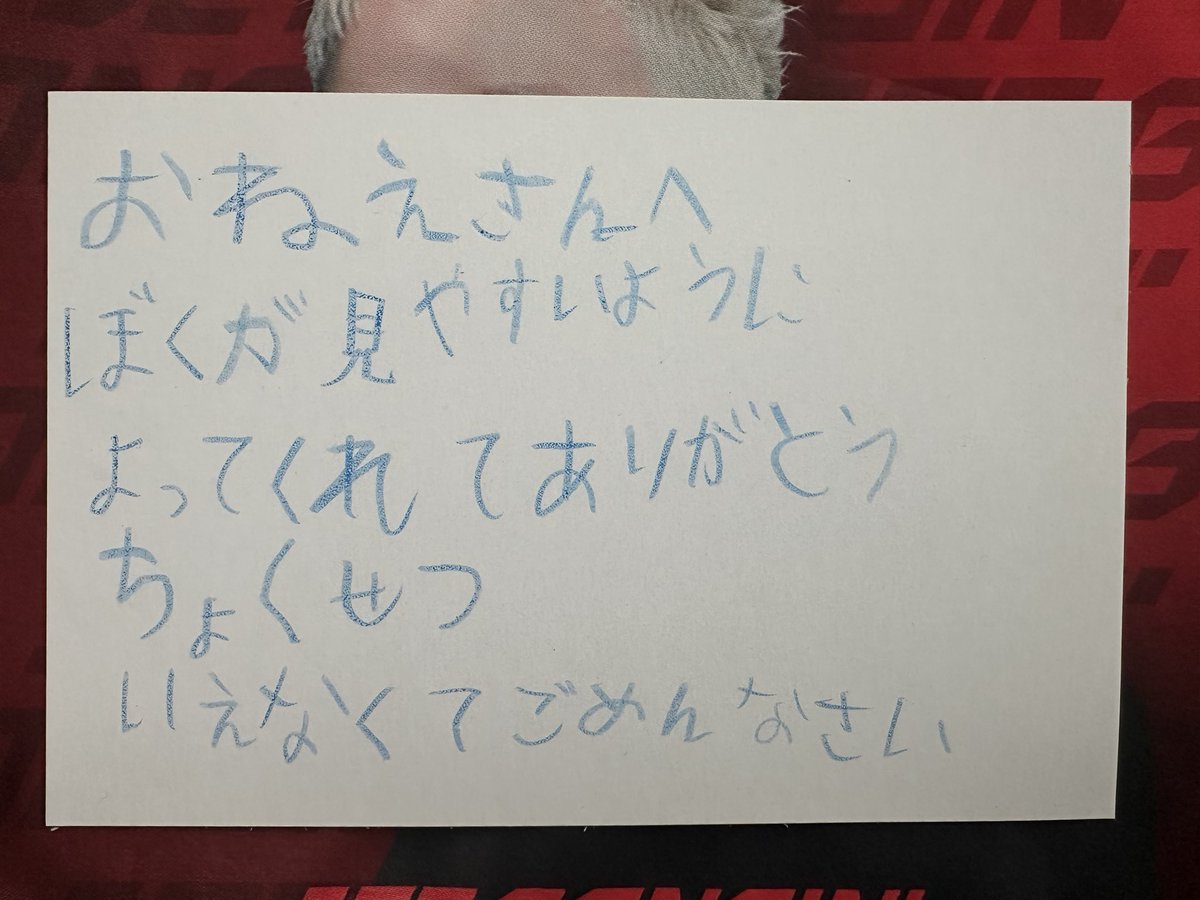 おねえさんへ
ぼくが見やすいように
よってくれてありがとう
ちょくせつ
いえなくてごめんなさい